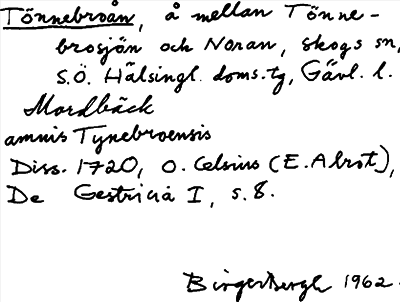 Tönnebroån, å mellan Tönne-
brosjön och Noran, Skogs sn,
S.Ö. Hälsingl. doms.tg, Gävl. l.
Mordbäck
amnis Tynebroensis
Diss. 1720, O. Celsius (E. Abrot),
De Gestricia I, s. 8.
Birger Bergh 1962.